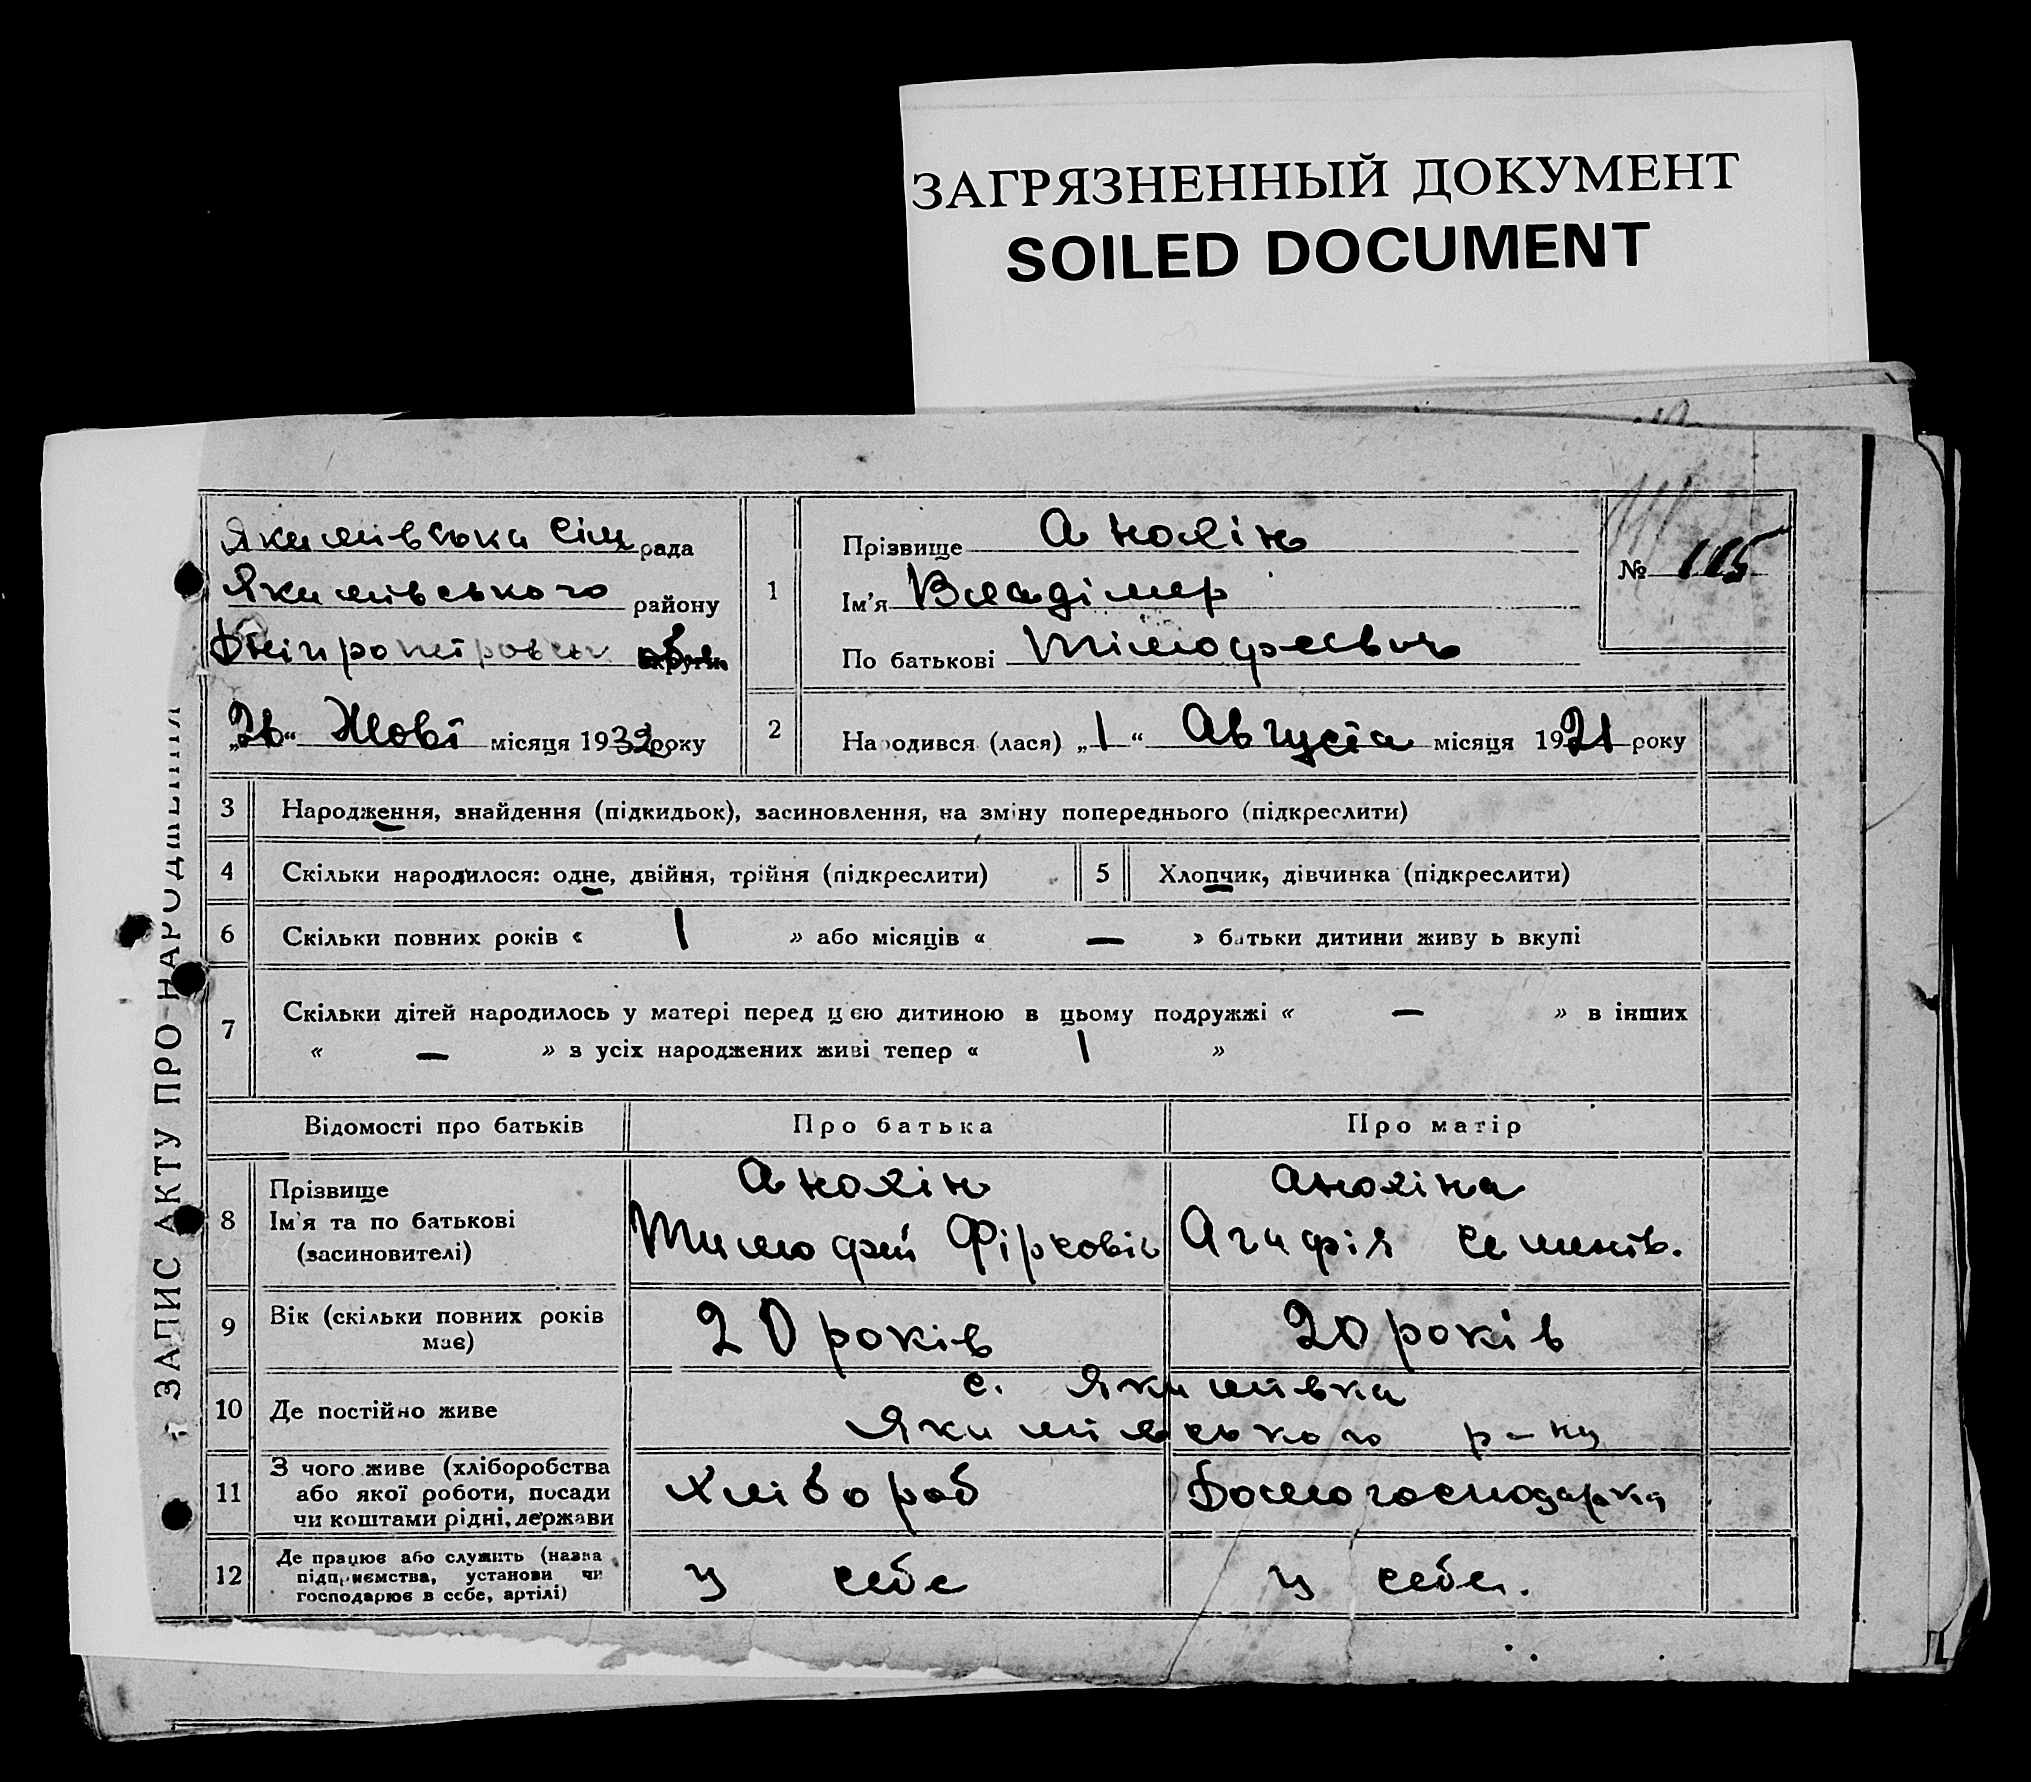 ЗАГРЯЗНЕННЫЙ ДОКУМЕНТ
SOILED DOCUMENT
ЗАПИС АКТУ ПРО НАРОДЖЕННЯ
Якимівська сіль рада
Якимівського району
Дніпропетровськ
„26“ Жовт місяця 1932 року
1
Прізвище Анолін
Ім'я Владімер
По батькові Тімофеевич
№ 115
2
Народився (лася) „1“ Августа місяця 1921 року
3 Народження, знайдення (підкидьок), засиновлення, на зміну попереднього (підкреслити)
4 Скільки народилося: одне, двійня, трійня (підкреслити) 5 Хлопчик, дівчинка (підкреслити)
6 Скільки повних років « 1 » або місяців « — » батьки дитини живуть вкупі
7 Скільки дітей народилось у матері перед цією дитиною в цьому подружжі « — » в інших
« — » з усіх народжених живі тепер « 1 »
Відомості про батьків Про батька Про матір
8 Прізвище
Ім'я та по батькові
(засиновителі)
Анолін
Тимофей
Аноліна
Агафія Семинів.
9 Вік (скільки повних років має)
20 років 20 років
10 Де постійно живе
с. Якимівка
Якимівського р-ну
11 З чого живе (хліборобства
або якої роботи, посади
чи коштами рідні, держави
Хлібороб Домогосподарка
12 Де працює або служить (назва
підприємства, установи чи
господарює в себе, артілі)
у себе у себе.